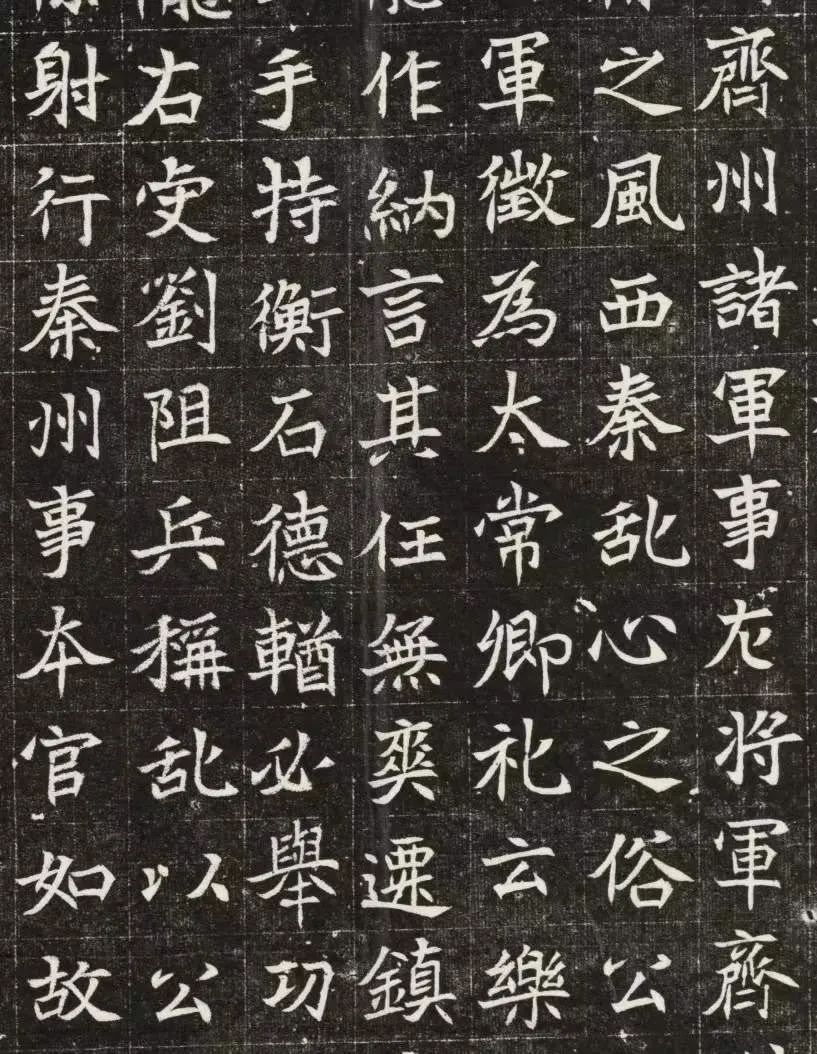 齊州諸軍事左将軍齊
之風西秦乱心之俗公
軍徵為太常卿礼云樂
作納言其任無爽遷鎮
手持衡石德輶必舉功
右叟劉阻兵稱乱以公
射行秦州事本官如故